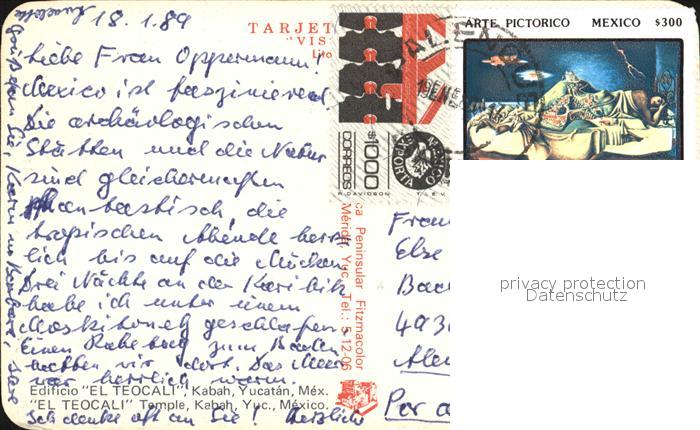 18.1.89
Liebe Frau Oppermann!
Mexico ist faszinierend
Die archäologischen
Stätten und die Natur
sind gleichermaßen
phantastisch, die
tropischen Abende herr-
lich bis auf die Mücken
Drei Nächte an der Karibik
habe ich unter einem
Moskitonetz geschlafen
Einen Rabe zum Baden
hatten wir dort. Das Meer
war herrlich warm.
Ich denke oft an Sie! Herzlichs
grüßen Sie, Karin
TARJET
"VIS
Lito
ca Peninsular Fitzmacolor
Mérida, Yuc. Tel.: 5-12-06
Edificio "EL TEOCALI", Kabah, Yucatán, Méx.
"EL TEOCALI" Temple, Kabah, Yuc., México.
$1000
CORREOS
MEXICO
EXPORTA
R. DAVIDSON
T.I.E.V.
ARTE PICTORICO MEXICO $300
Frau
Else
Bac
493
Per a
privacy protection
Datenschutz